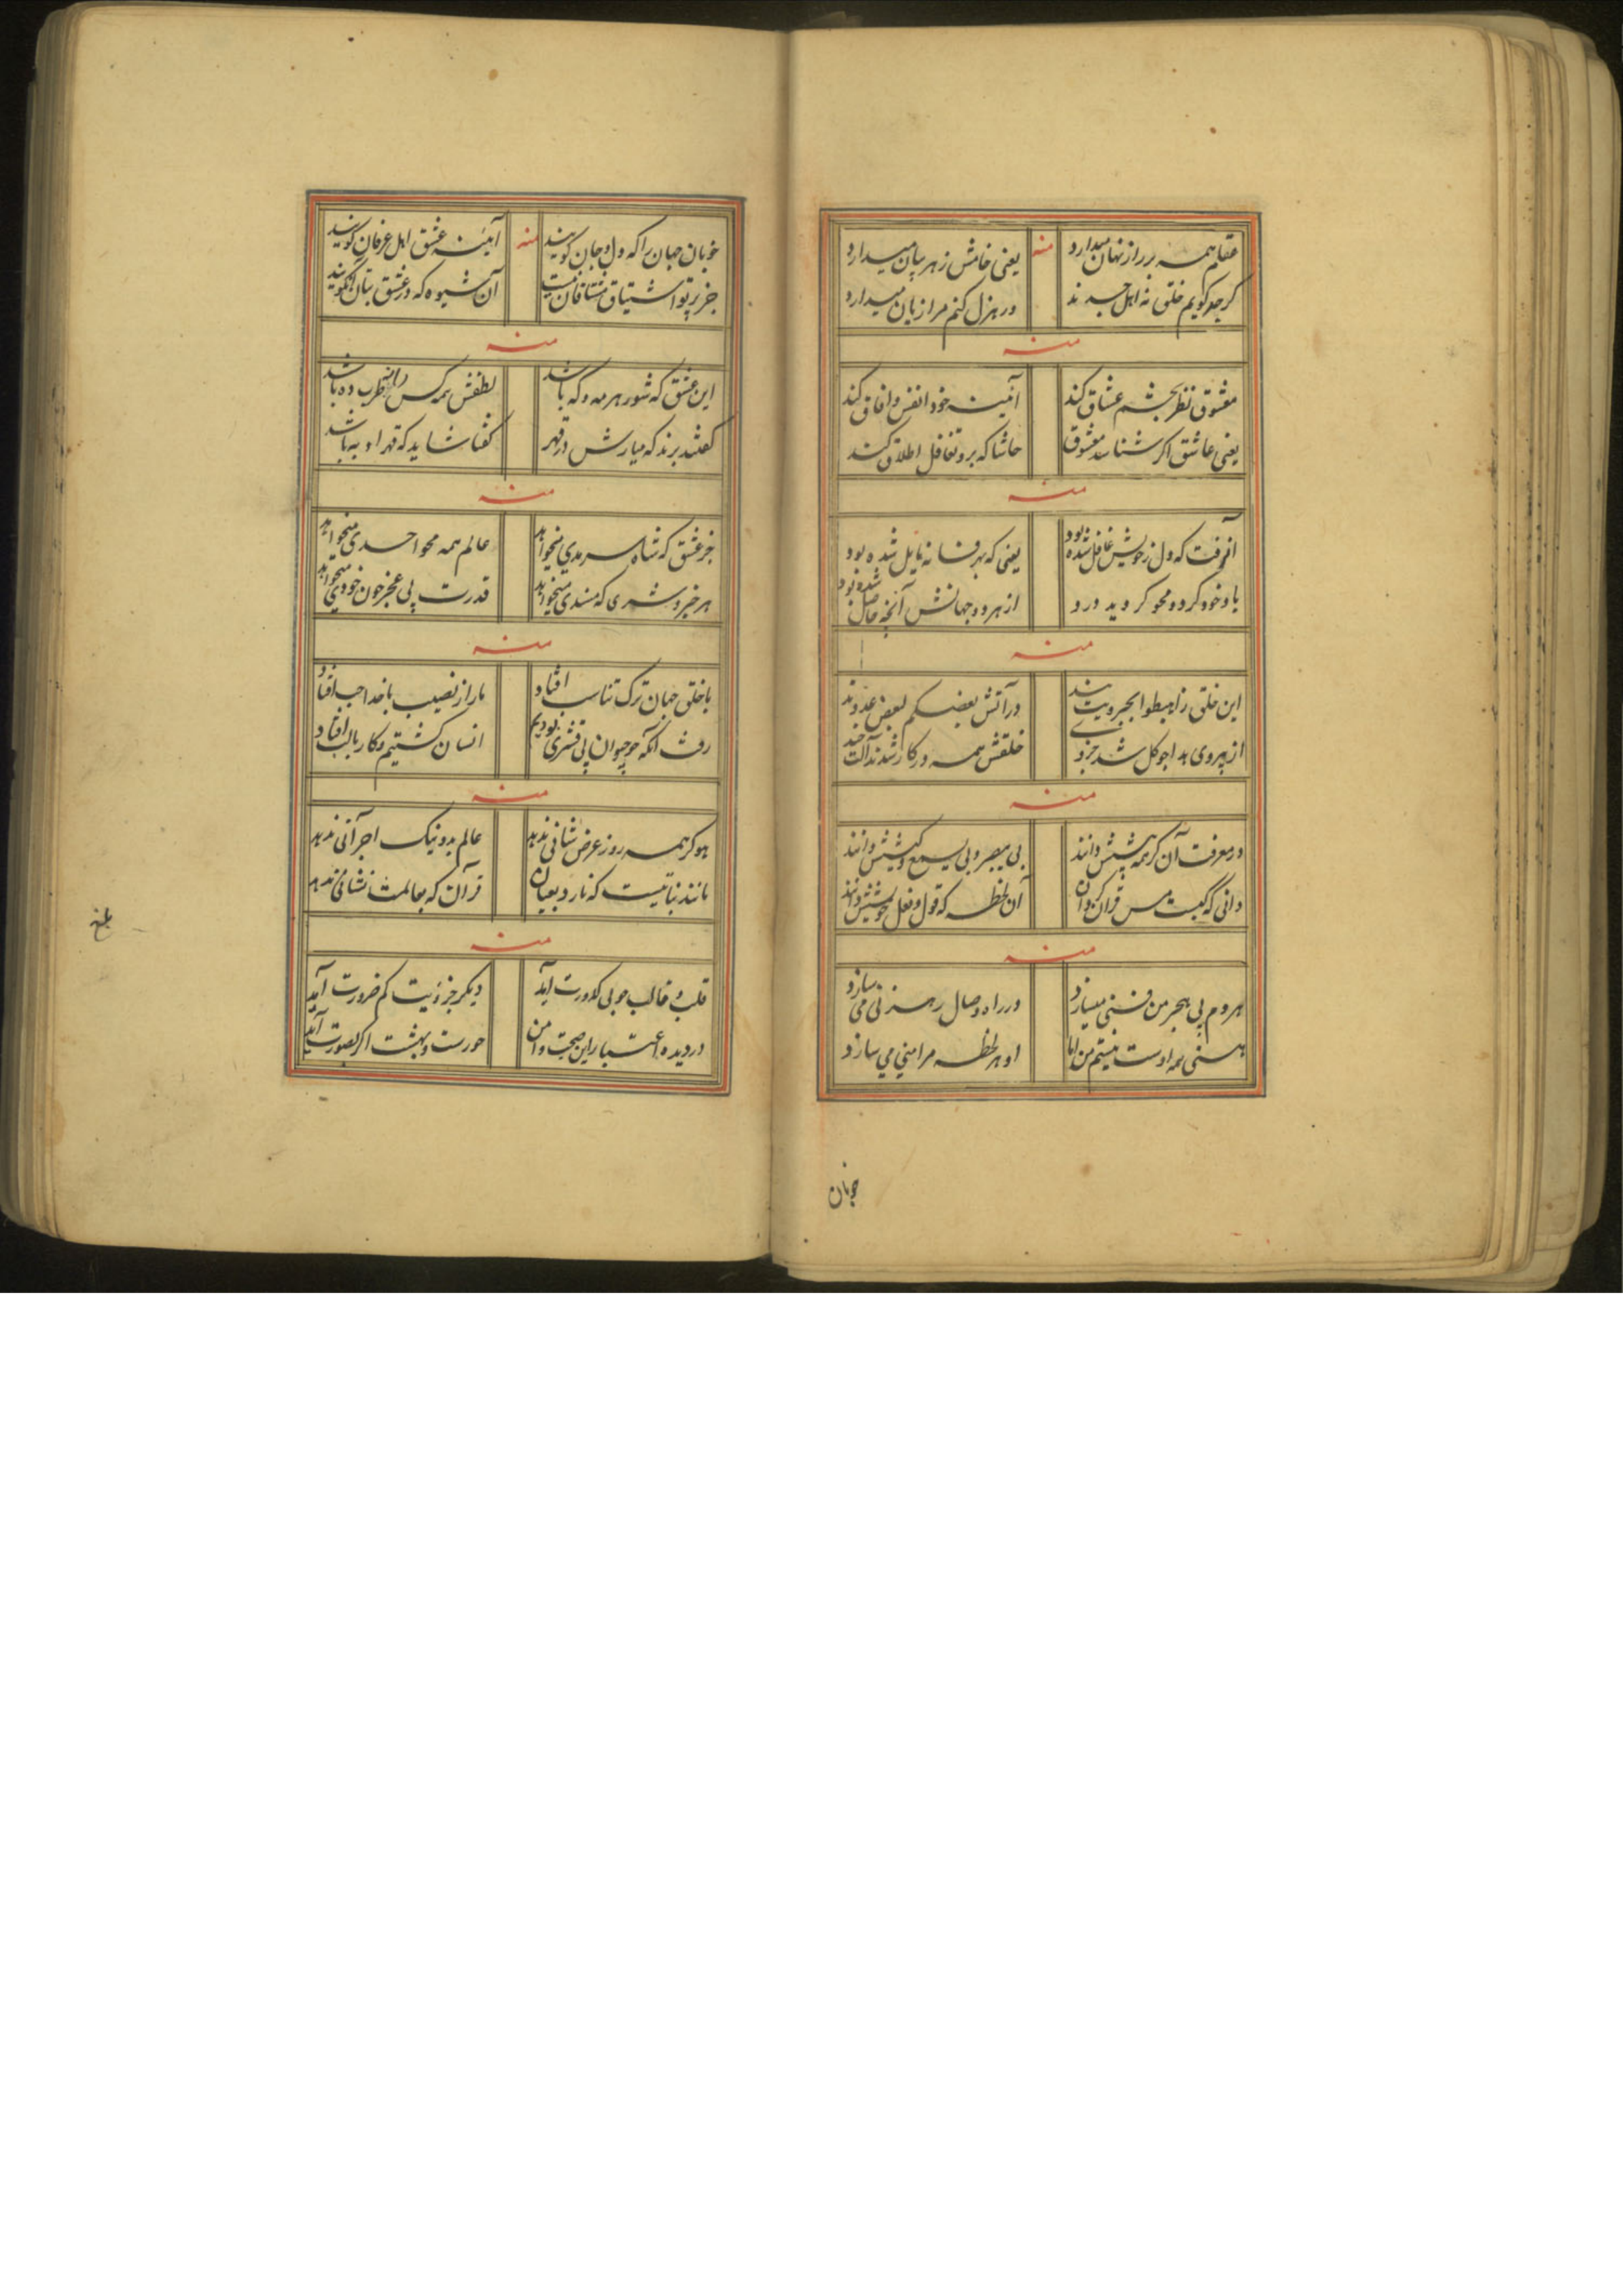 عقلم همه بر راز نهان میدارد
یعنی خامش ز هر بیان میدارد
منه
کر جد کویم خلق نه اهل جدند
ور هزل کنم مرا زیان میدارد
منه
معشوق نظر بچشم عشاق کند
آئینه خود انفس و افاق کند
یعنی عاشق اکر شناسد معشوق
حاشا که برو تغافل اطلاق کند
منه
که دل ز خویش غافل شده بود
یعنی که بهر فسانه مایل شده بود
یاد خود کرد و محو کردید درو
از هر دو جهانش آنچه حاصل شده بود
منه
این خلق ز اهبطوا بجبرویت
در آتش بعضکم لبعض عدوند
از پیروی بد اجو کل شد جزو
خلقش همه در کار شدند آلت
منه
در معرفت آن کر همه پیشش دانند
بی یبصر و بی یسمع و کیشش دانند
دانی که کیست مس قرآن کردن
آن لحظه که قول و فعل خویشش دانند
منه
هر دم پی هجر من فنی میسازد
در راه وصال رهزنی می سازد
هستی همه اوست نیستم من اما
او هر لحظه مرا منی می سازد
خوبان
خوبان جهان را که دل و جان کویند
آئینه عشق اهل عرفان کویند
منه
جز پرتو اشتیاق مشتاقان نیست
آن شیوه که در عشق بتان آن کویند
منه
این عشق که شور هر مه و که باشد
لطفش همه کس را طرب ده باشد
کفتند برند که میارش در قهر
کفتا شاید که قهر او به باشد
منه
جز عشق که شاه سرمدی میخواهد
عالم همه محو احدی میخواهد
هر خیر و شری که مسندی میخواهد
قدرت پی عجز خون خودی میخواهد
منه
با خلق جهان ترک تناسب افتاد
ما را ز نصیب با خدا جب افتاد
رفت آنکه چو حیوان پی قشری بودیم
انسان کشتیم و کار با لب افتاد
منه
هو کر همه روز عرض شانی ندهد
عالم بد و نیک اجر آنی ندهد
مانند نباتیست که نارد بعیان
قرآن که بعالمت نشانی ندهد
منه
قلب و قالب چو بی کدورت آید
دیکر جزویت کم ضرورت آید
در دیده اعتبار این صحبت و امن
حورست و بهشت اکر بصورت آید
بلغ